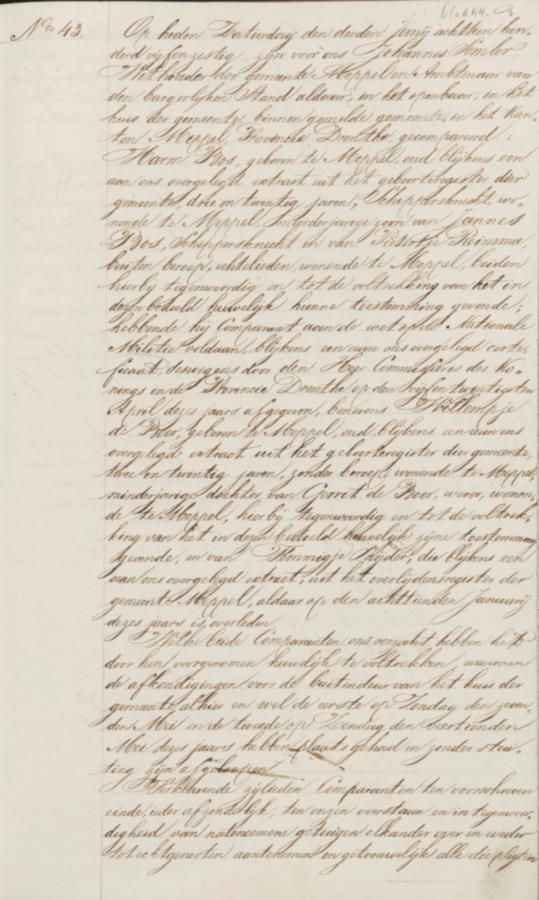 blad 44.
N° 43. Op heden Zaturdag den derden Junij achttien hon-
derd vijf en zestig, zijn voor ons Johannes
Wethouder der gemeente Meppel en Ambtenaar van
den burgerlijken Stand aldaar, in het openbaar, in het
huis der gemeente, binnen gemelde gemeente, in het Kan-
ton Meppel, Provincie Drenthe, gecompareerd:
Harm Bos, geboren te Meppel, oud blijkens een
aan ons overgelegd extract uit het geboorteregister dier
gemeente, drie en twintig jaren, Schippersknecht, wo-
nende te Meppel, meerderjarige zoon van Jannes
Bos, Schippersknecht en van Pietertje Reinsma,
buiten beroep, echtelieden, wonende te Meppel, beiden
hierbij tegenwoordig en tot de voltrekking van het in
dezen bedoeld huwelijk hunne toestemming gevende;
hebbende hij Comparant aan de wet op de Nationale
Militie voldaan, blijkens een aan ons overgelegd certi-
ficaat, deswegens door den Heer Commissaris des Ko-
nings in de Provincie Drenthe op den vijf en twintigsten
April dezes jaars afgegeven, benevens Willempje
de Boer, geboren te Meppel, oud, blijkens een aan ons
overgelegd extract uit het geboorteregister dier gemeente,
twee en twintig jaren, zonder beroep, wonende te Meppel,
minderjarige dochter van Gerrit de Boer, wever, wonen-
de te Meppel, hierbij tegenwoordig en tot de voltrek-
king van het in dezen bedoeld huwelijk zijne toestemming
gevende, en van Hommigje Snijder, die blijkens een
aan ons overgelegd extract, uit het overlijdensregister der
gemeente Meppel, aldaar op den achttienden Januarij
dezes jaars is overleden.
Welke beide Comparanten ons verzocht hebben het
door hen voorgenomen huwelijk te voltrekken, waarvan
de afkondigingen voor de buitendeur van het huis der
gemeente alhier en wel de eerste op Zondag den zeven-
den Mei en de tweede op Zondag den veertienden
Mei dezes jaars hebben plaats gehad en zonder stui-
ting zijn afgeloopen.
Verklarende zijlieden Comparanten ten voorschreven
einde, ieder afzonderlijk, ten onzen overstaan en in tegenwoor-
digheid van natenoemene getuigen elkander over en weder
tot echtgenooten aantenemen en getrouwelijk alle de pligten